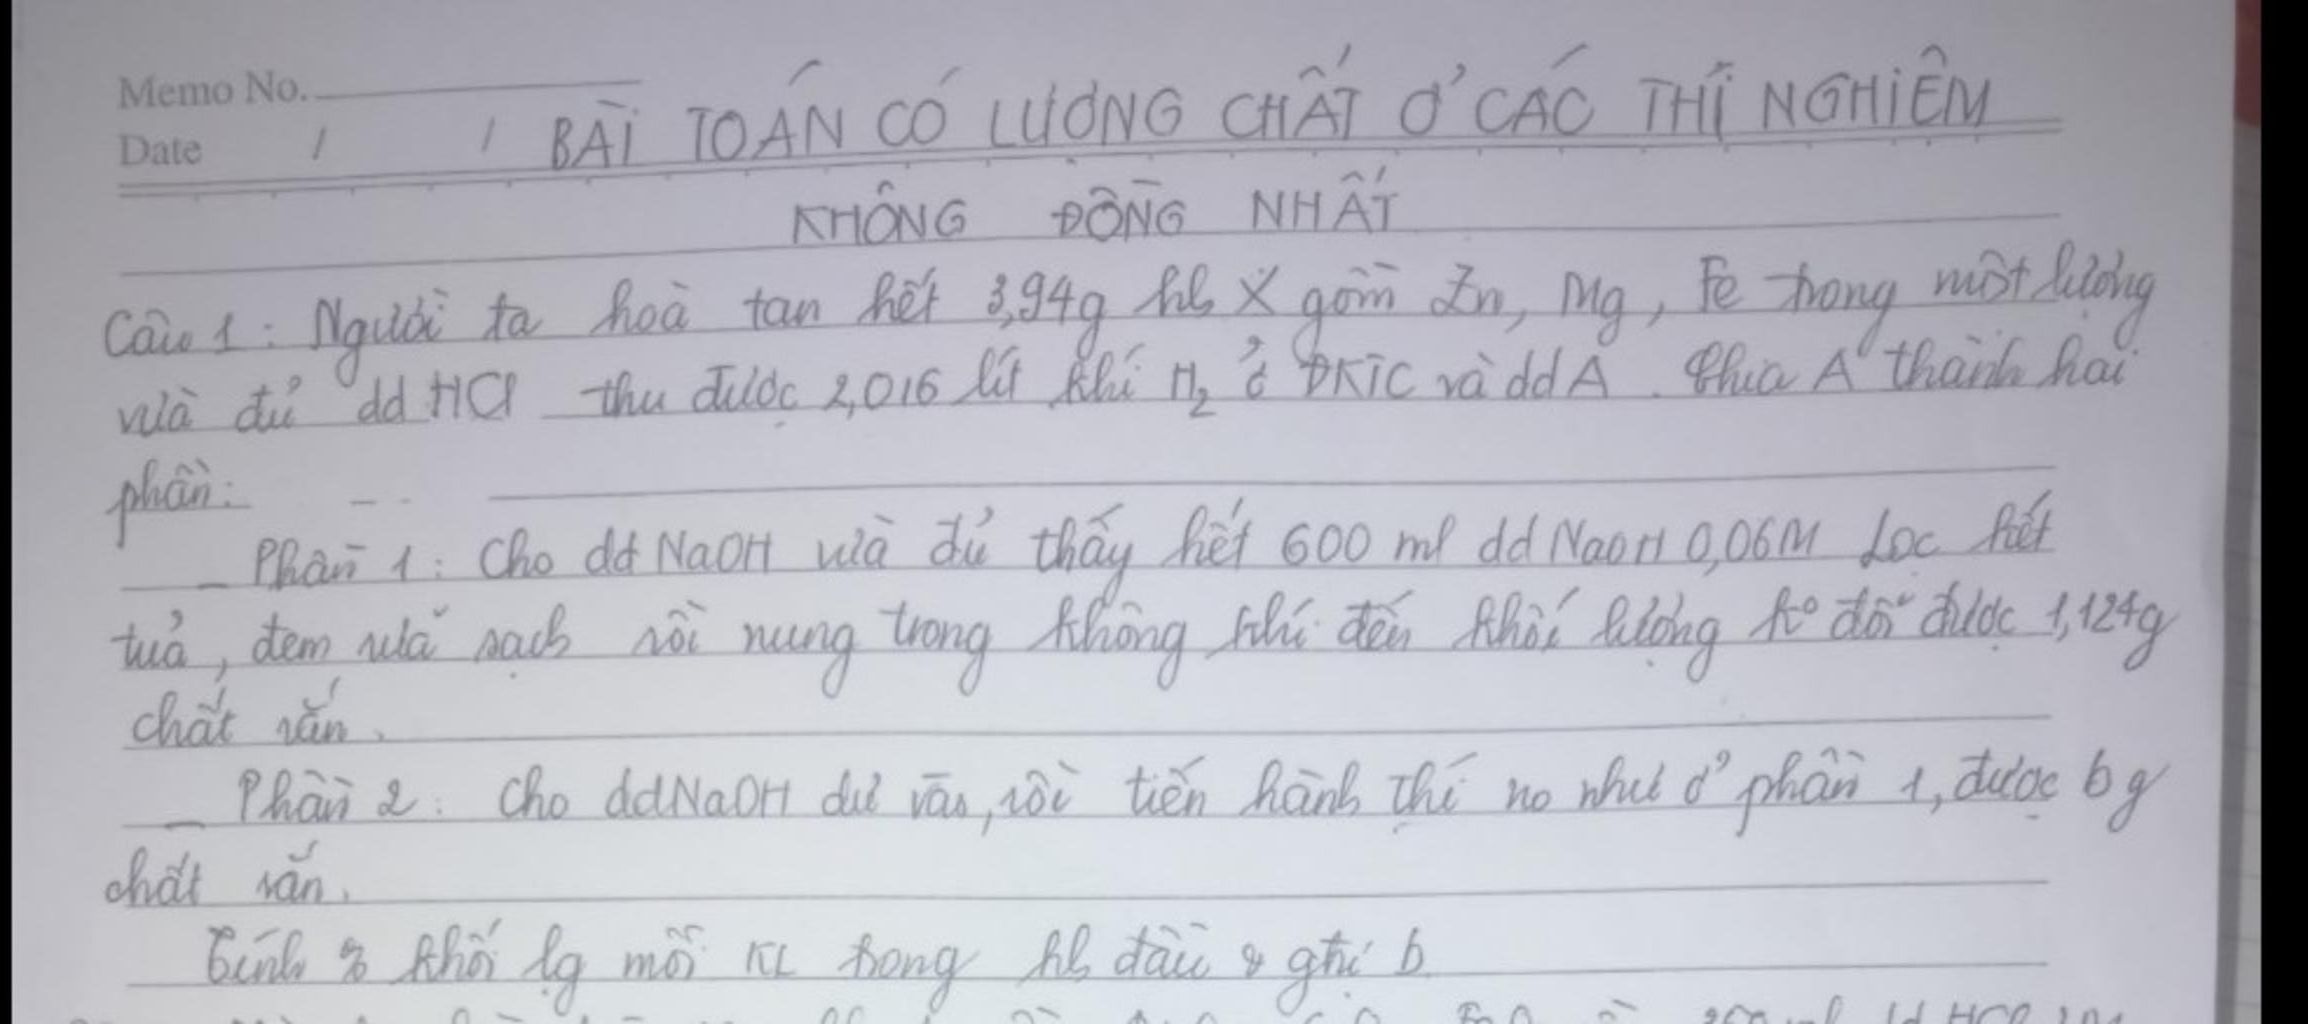 Memo No.
Date / / BÀI TOÁN CÓ LƯỢNG CHẤT Ở CÁC THÍ NGHIỆM
KHÔNG ĐỒNG NHẤT
Câu 1: Người ta hoà tan hết 3,94g hh X gồm Zn, Mg, Fe trong một lượng
vừa đủ dd HCl thu được 2,016 lít khí H2 ở ĐKTC và dd A. Chia A thành hai
phần:
- Phần 1: Cho dd NaOH vừa đủ thấy hết 600 ml dd NaOH 0,06M Lọc kết
tuả, đem rửa sạch rồi nung trong không khí đến khối lượng ko đổi được 1,124g
chất rắn.
- Phần 2: Cho ddNaOH dư vào, rồi tiến hành thí no như ở phần 1, được b g
chất rắn.
Tính % khối lg mỗi KL trong hh đầu & gtrị b